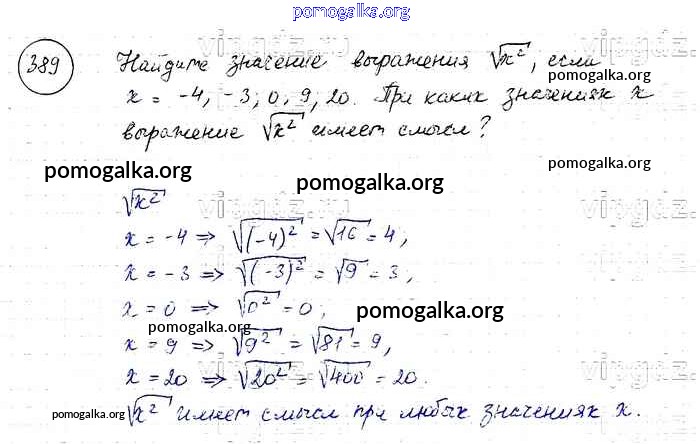 pomogalka.org
389 Найдите значение выражения √x², если
pomogalka.org
x = -4, -3, 0, 9, 20. При каких значениях x
выражение √x² имеет смысл?
pomogalka.org
pomogalka.org
pomogalka.org
√x²
x = -4 => √(-4)² = √16 = 4,
x = -3 => √(-3)² = √9 = 3,
x = 0 => √0² = 0,
pomogalka.org
pomogalka.org
x = 9 => √9² = √81 = 9,
x = 20 => √20² = √400 = 20.
pomogalka.org
√x² имеет смысл при любых значениях x.
pomogalka.org